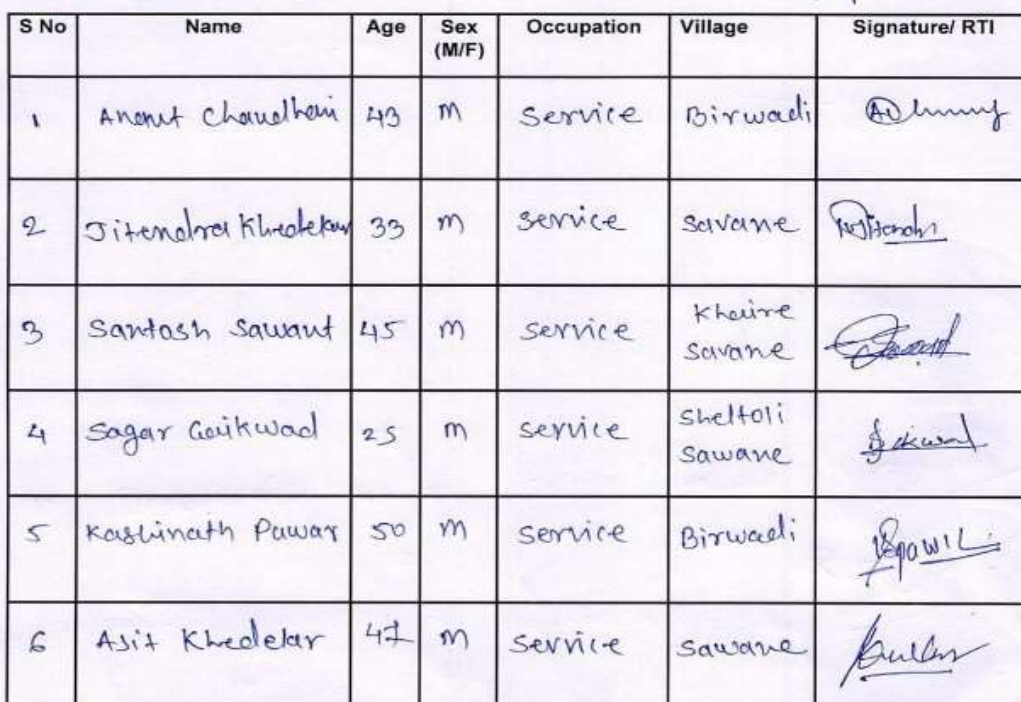 S No Name Age Sex (M/F) Occupation Village Signature/ RTI
1 Anant Chaudhari 43 M Service Birwadi
2 Jitendra Khedekar 33 M Service Savane
3 Santosh Sawant 45 M Service Khaire Savane
4 Sagar Gaikwad 25 M Service Sheltoli Sawane
5 Kashinath Pawar 50 M Service Birwadi
6 Ajit Khedekar 47 M Service Sawane